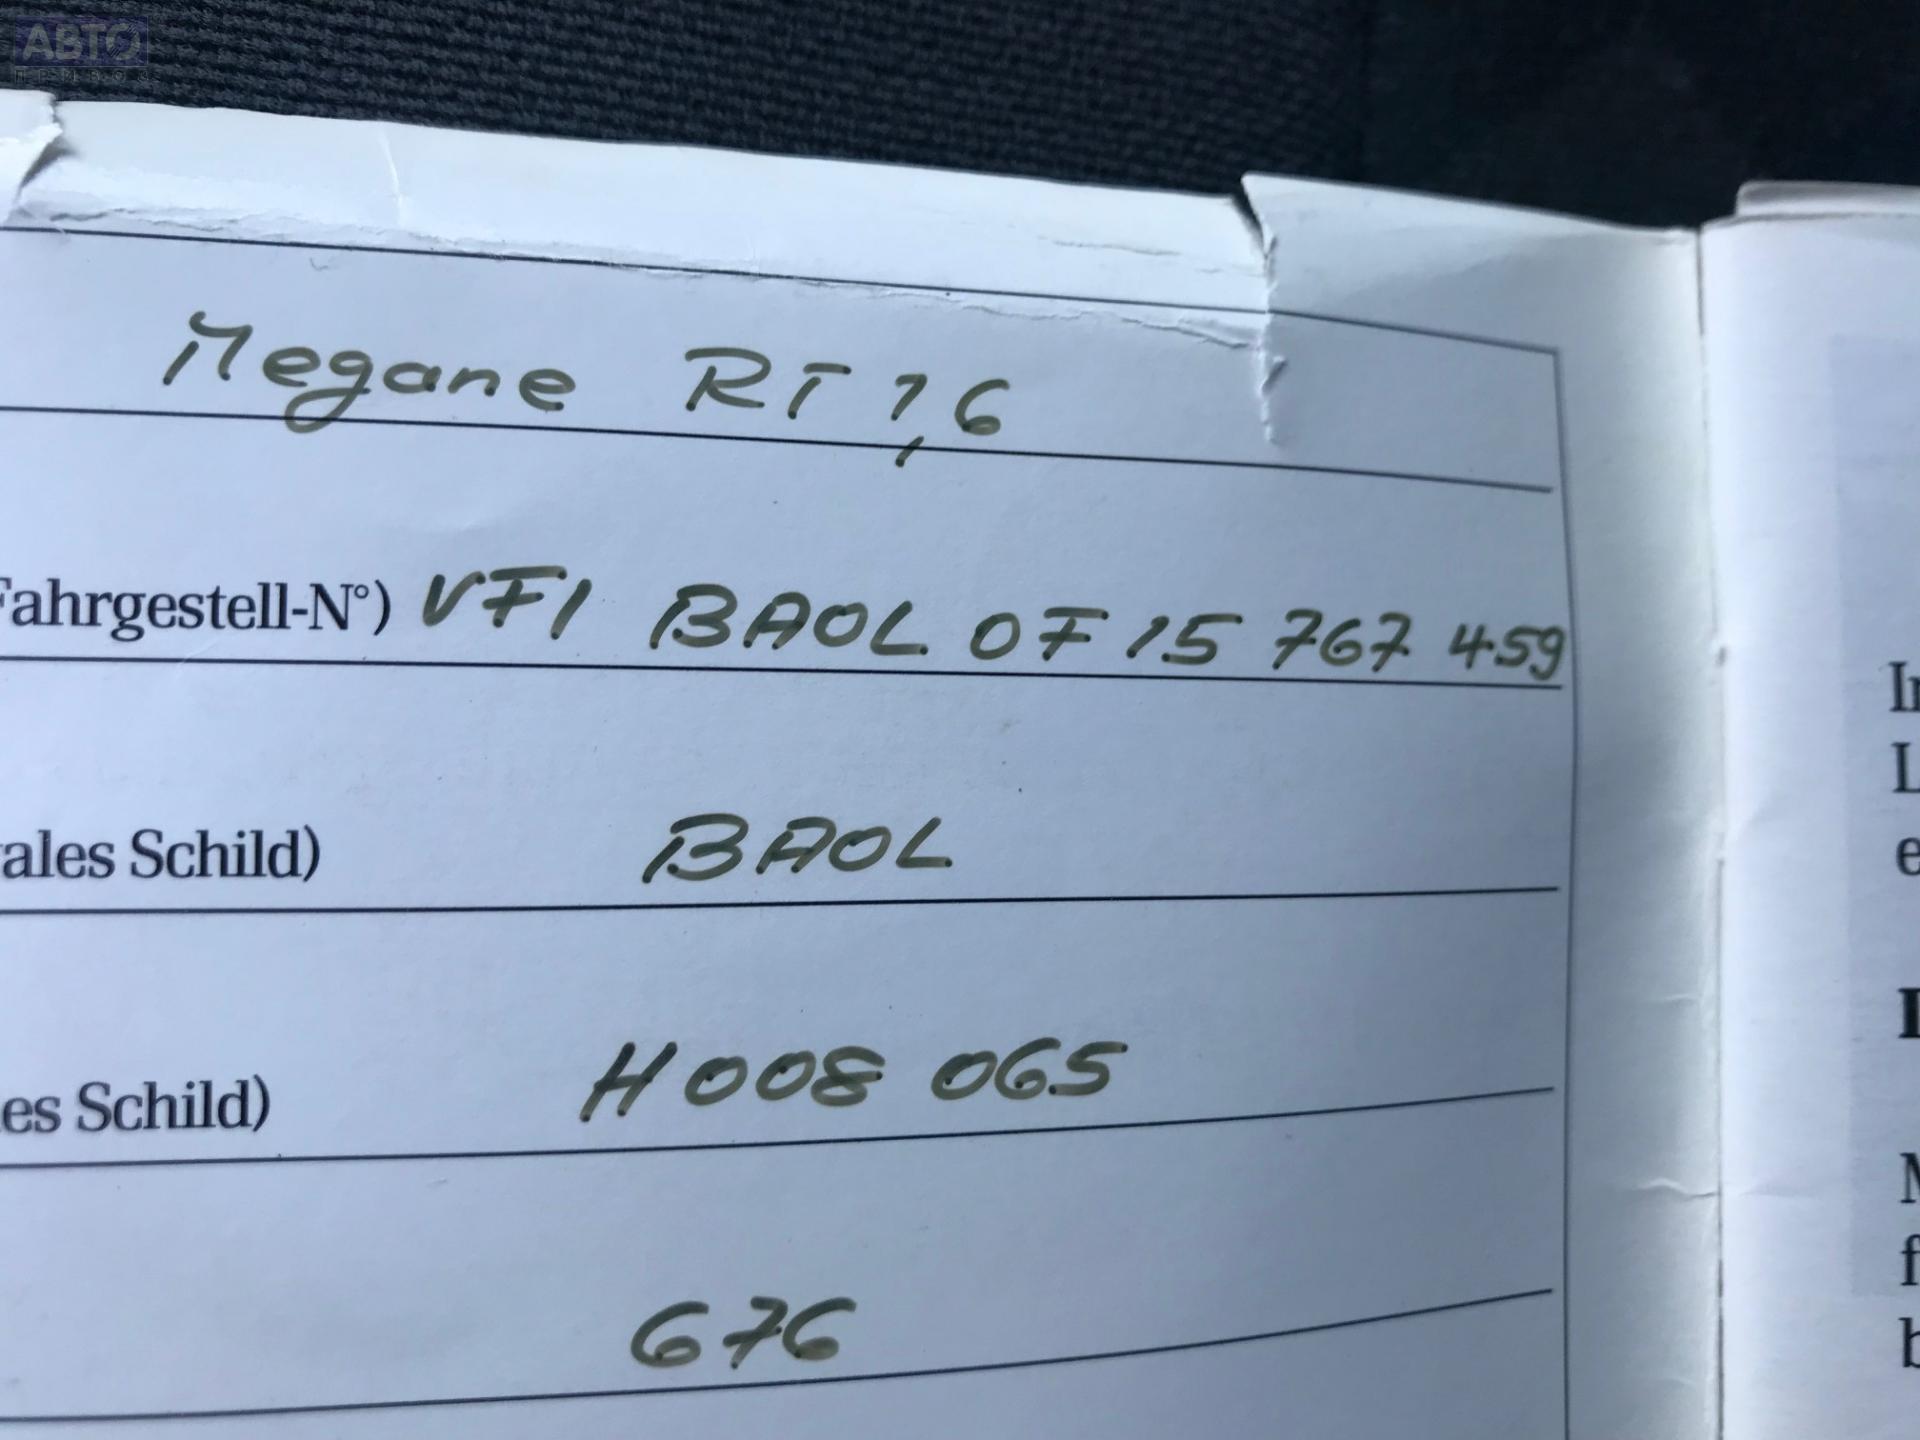 АВТО
ПРИВОЗ
Megane RT 1,6
Fahrgestell-N°) VF1 BAOL OF 15 767 459
ales Schild) BAOL
es Schild) H008 065
676
L
e
f
b